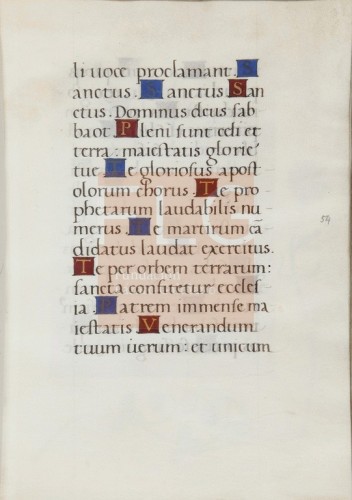 li voce proclamant. S
anctus. Sanctus San
ctus. Dominus deus sab
baot Pleni sunt celi et
terra: maiestatis glorie
tue Te gloriosus apost
olorum chorus. Te pro
phetarum laudabilis nu
merus. Te martirum cã
didatus laudat exercitus.
Te per orbem terrarum:
sancta confitetur eccles
ia. Patrem immense ma
iestatis Venerandum
tuum verum: et unicum